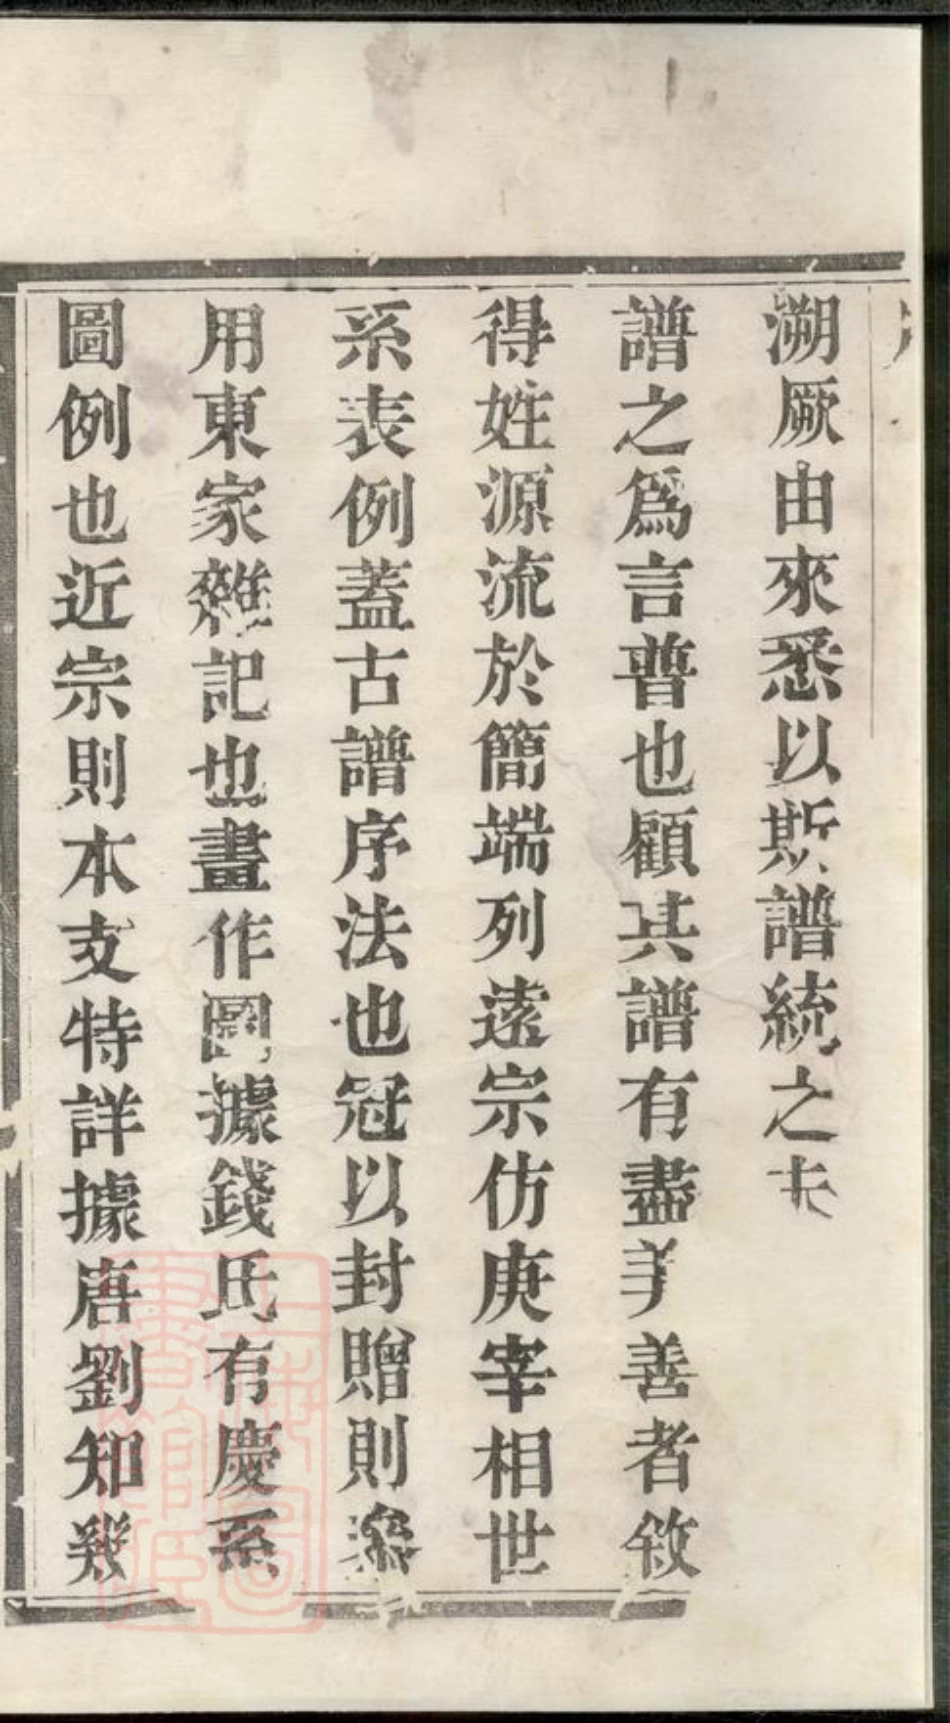 溯厥由來悉以斯譜統之夫
譜之爲言普也顧其譜有盡美善者敘
得姓源流於簡端列遠宗仿庚宰相世
系表例蓋古譜序法也冠以封贈則
用東家雜記也畫作圖據錢氏有慶系
圖例也近宗則本支特詳據唐劉知幾